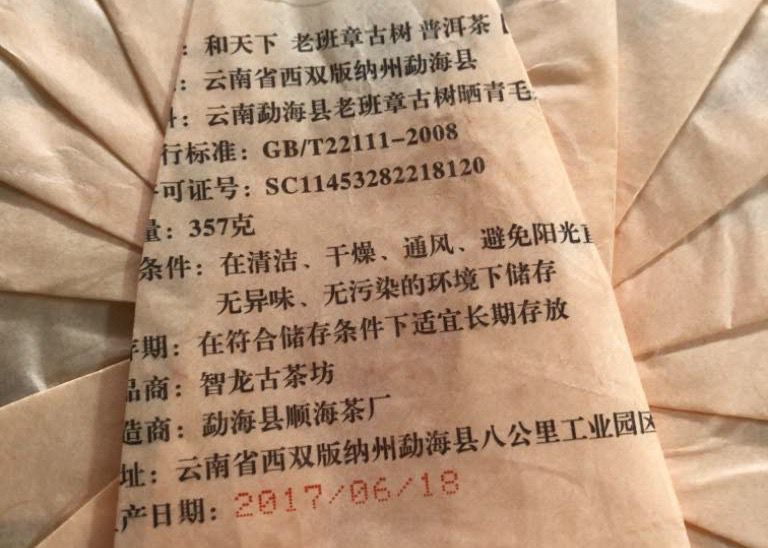 ：和天下 老班章古树 普洱茶
：云南省西双版纳州勐海县
：云南勐海县老班章古树晒青毛
行标准：GB/T22111-2008
可证号：SC11453282218120
量：357克
条件：在清洁、干燥、通风、避免阳光直
无异味、无污染的环境下储存
存期：在符合储存条件下适宜长期存放
品商：智龙古茶坊
造商：勐海县顺海茶厂
址：云南省西双版纳州勐海县八公里工业园区
产日期：2017/06/18